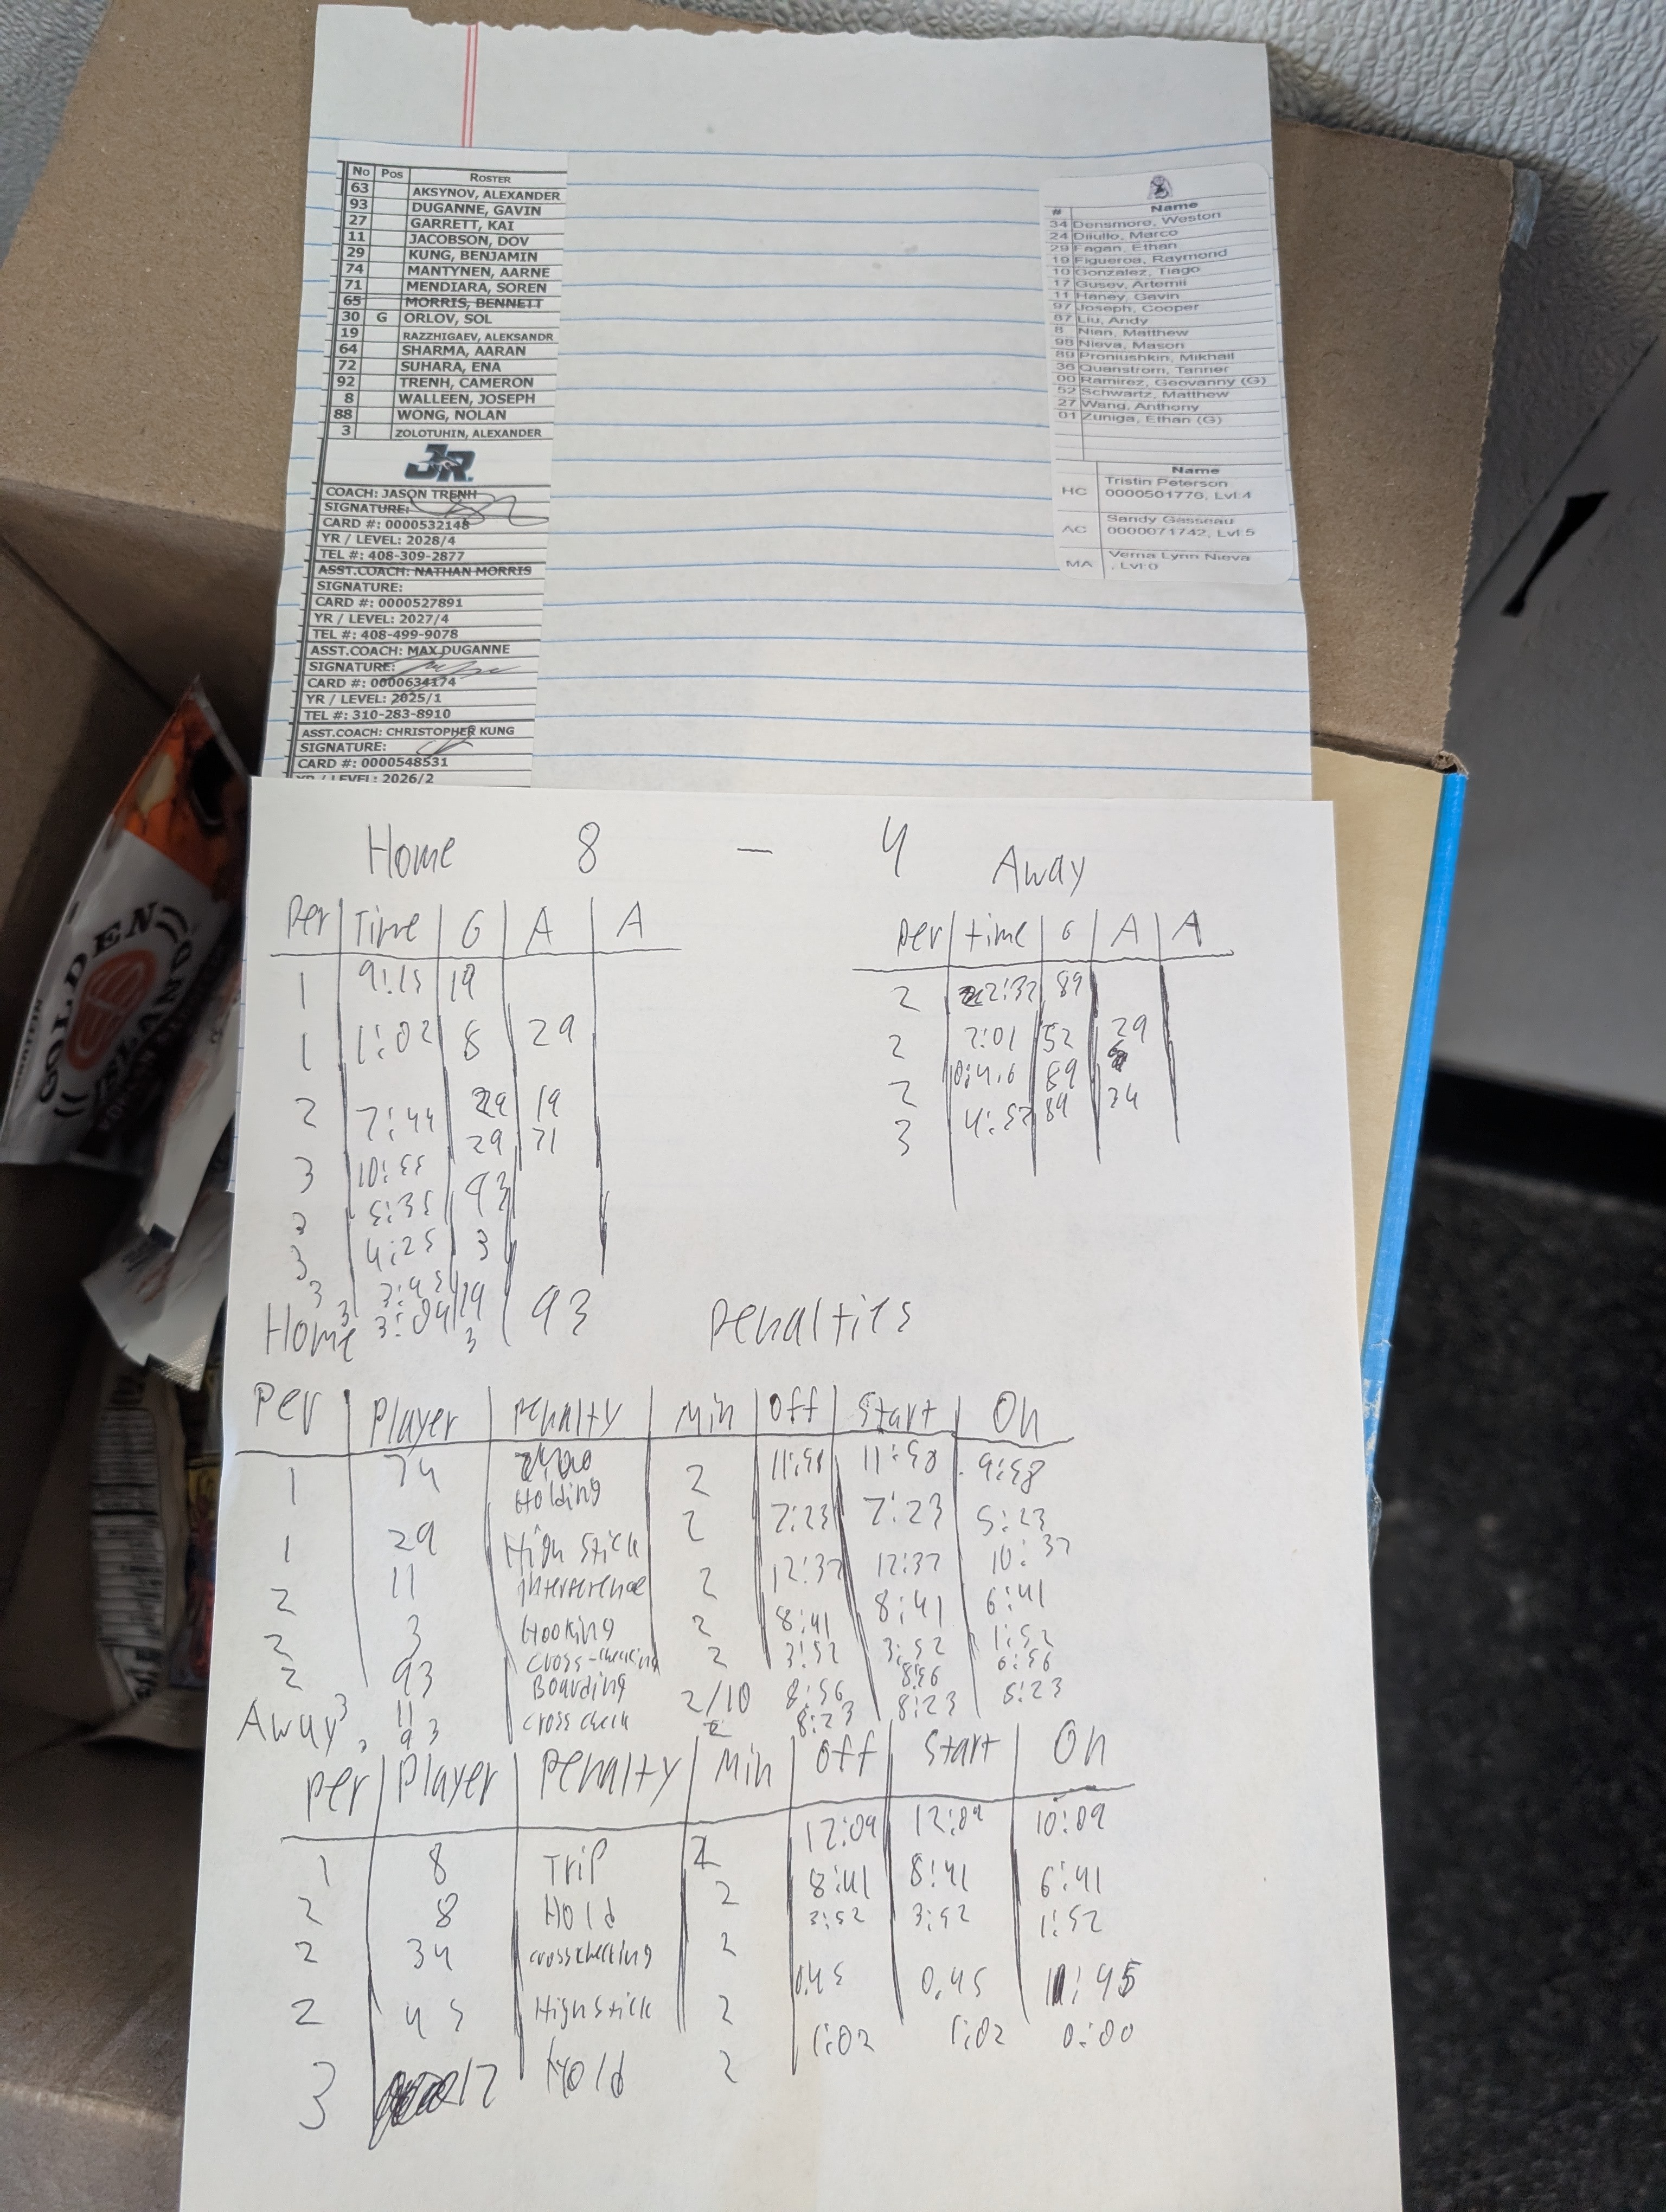 No Pos ROSTER
63 AKSYNOV, ALEXANDER
93 DUGANNE, GAVIN
27 GARRETT, KAI
11 JACOBSON, DOV
29 KUNG, BENJAMIN
74 MANTYNEN, AARNE
71 MENDIARA, SOREN
65 MORRIS, BENNETT
30 G ORLOV, SOL
19 RAZZHIGAEV, ALEKSANDR
64 SHARMA, AARAN
72 SUHARA, ENA
92 TRENH, CAMERON
8 WALLEEN, JOSEPH
88 WONG, NOLAN
3 ZOLOTUHIN, ALEXANDER
JR.
COACH: JASON TRENH
SIGNATURE:
CARD #: 0000532148
YR / LEVEL: 2028/4
TEL #: 408-309-2877
ASST.COACH: NATHAN MORRIS
SIGNATURE:
CARD #: 0000527891
YR / LEVEL: 2027/4
TEL #: 408-499-9078
ASST.COACH: MAX DUGANNE
SIGNATURE:
CARD #: 0000634174
YR / LEVEL: 2025/1
TEL #: 310-283-8910
ASST.COACH: CHRISTOPHER KUNG
SIGNATURE:
CARD #: 0000548531
YR / LEVEL: 2026/2
# Name
34 Densmore, Weston
24 Diiullo, Marco
29 Fagan, Ethan
19 Figueroa, Raymond
10 Gonzalez, Tiago
17 Gusev, Artemii
11 Haney, Gavin
97 Joseph, Cooper
87 Liu, Andy
8 Nian, Matthew
98 Nieva, Mason
89 Proniushkin, Mikhail
36 Quanstrom, Tanner
00 Ramirez, Geovanny (G)
52 Schwartz, Matthew
27 Wang, Anthony
01 Zuniga, Ethan (G)
Name
HC Tristin Peterson
0000501776, Lvl:4
AC Sandy Gasseau
0000071742, Lvl:5
MA Verna Lynn Nieva
, Lvl:0
GOLDEN ISLAND
Home 8 - 4 Away
Per Time G A A
1 9:15 19
1 1:02 8 29
2 7:44 29 19
3 10:55 29 71
3 5:35 93
3 4:25 3
3 3:45 19
3 3:04 3 93
Per time G A A
2 2:37 89
2 2:01 52 29
2 10:4.6 89
3 4:52 89 34
Home Penalties
Per Player Penalty Min Off Start On
1 74 Holding 2 11:58 11:58 9:58
1 29 High Stick 2 7:23 7:23 5:23
2 11 interference 2 12:37 12:37 10:37
2 3 Hooking 2 8:41 8:41 6:41
2 93 cross-checking 2 3:52 3:52 1:52
3 11 Boarding 2/10 8:56 8:56 6:56
93 cross check 2 8:23 8:23 6:23
Away
Per Player Penalty Min Off Start On
1 8 Trip 2 12:09 12:09 10:09
2 8 Hold 2 8:41 8:41 6:41
2 34 crosschecking 2 3:52 3:52 1:52
2 45 High stick 2 0:45 0.45 11:45
3 17 Hold 2 1:02 1:02 0:00